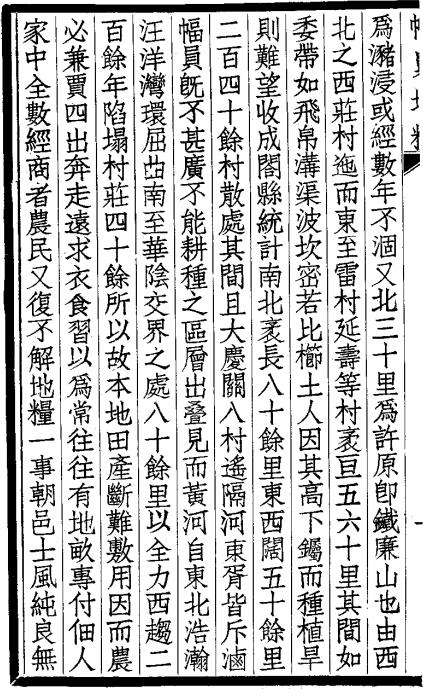 爲瀦浸或經數年不涸又北三十里爲許原卽鐵廉山也由西
北之西莊村迤而東至雷村延壽等村袤亘五六十里其間如
委帶如飛帛溝渠波坎密若比櫛土人因其高下钃而種植旱
則難望收成閤縣統計南北袤長八十餘里東西闊五十餘里
二百四十餘村散處其間且大慶關八村遙隔河東胥皆斥滷
幅員旣不甚廣不能耕種之區層出叠見而黃河自東北浩瀚
汪洋灣環屈曲南至華陰交界之處八十餘里以全力西趨二
百餘年陷塌村莊四十餘所以故本地田產斷難敷用因而農
必兼賈四出奔走遠求衣食習以爲常往往有地畝專付佃人
家中全數經商者農民又復不解地糧一事朝邑士風純良無